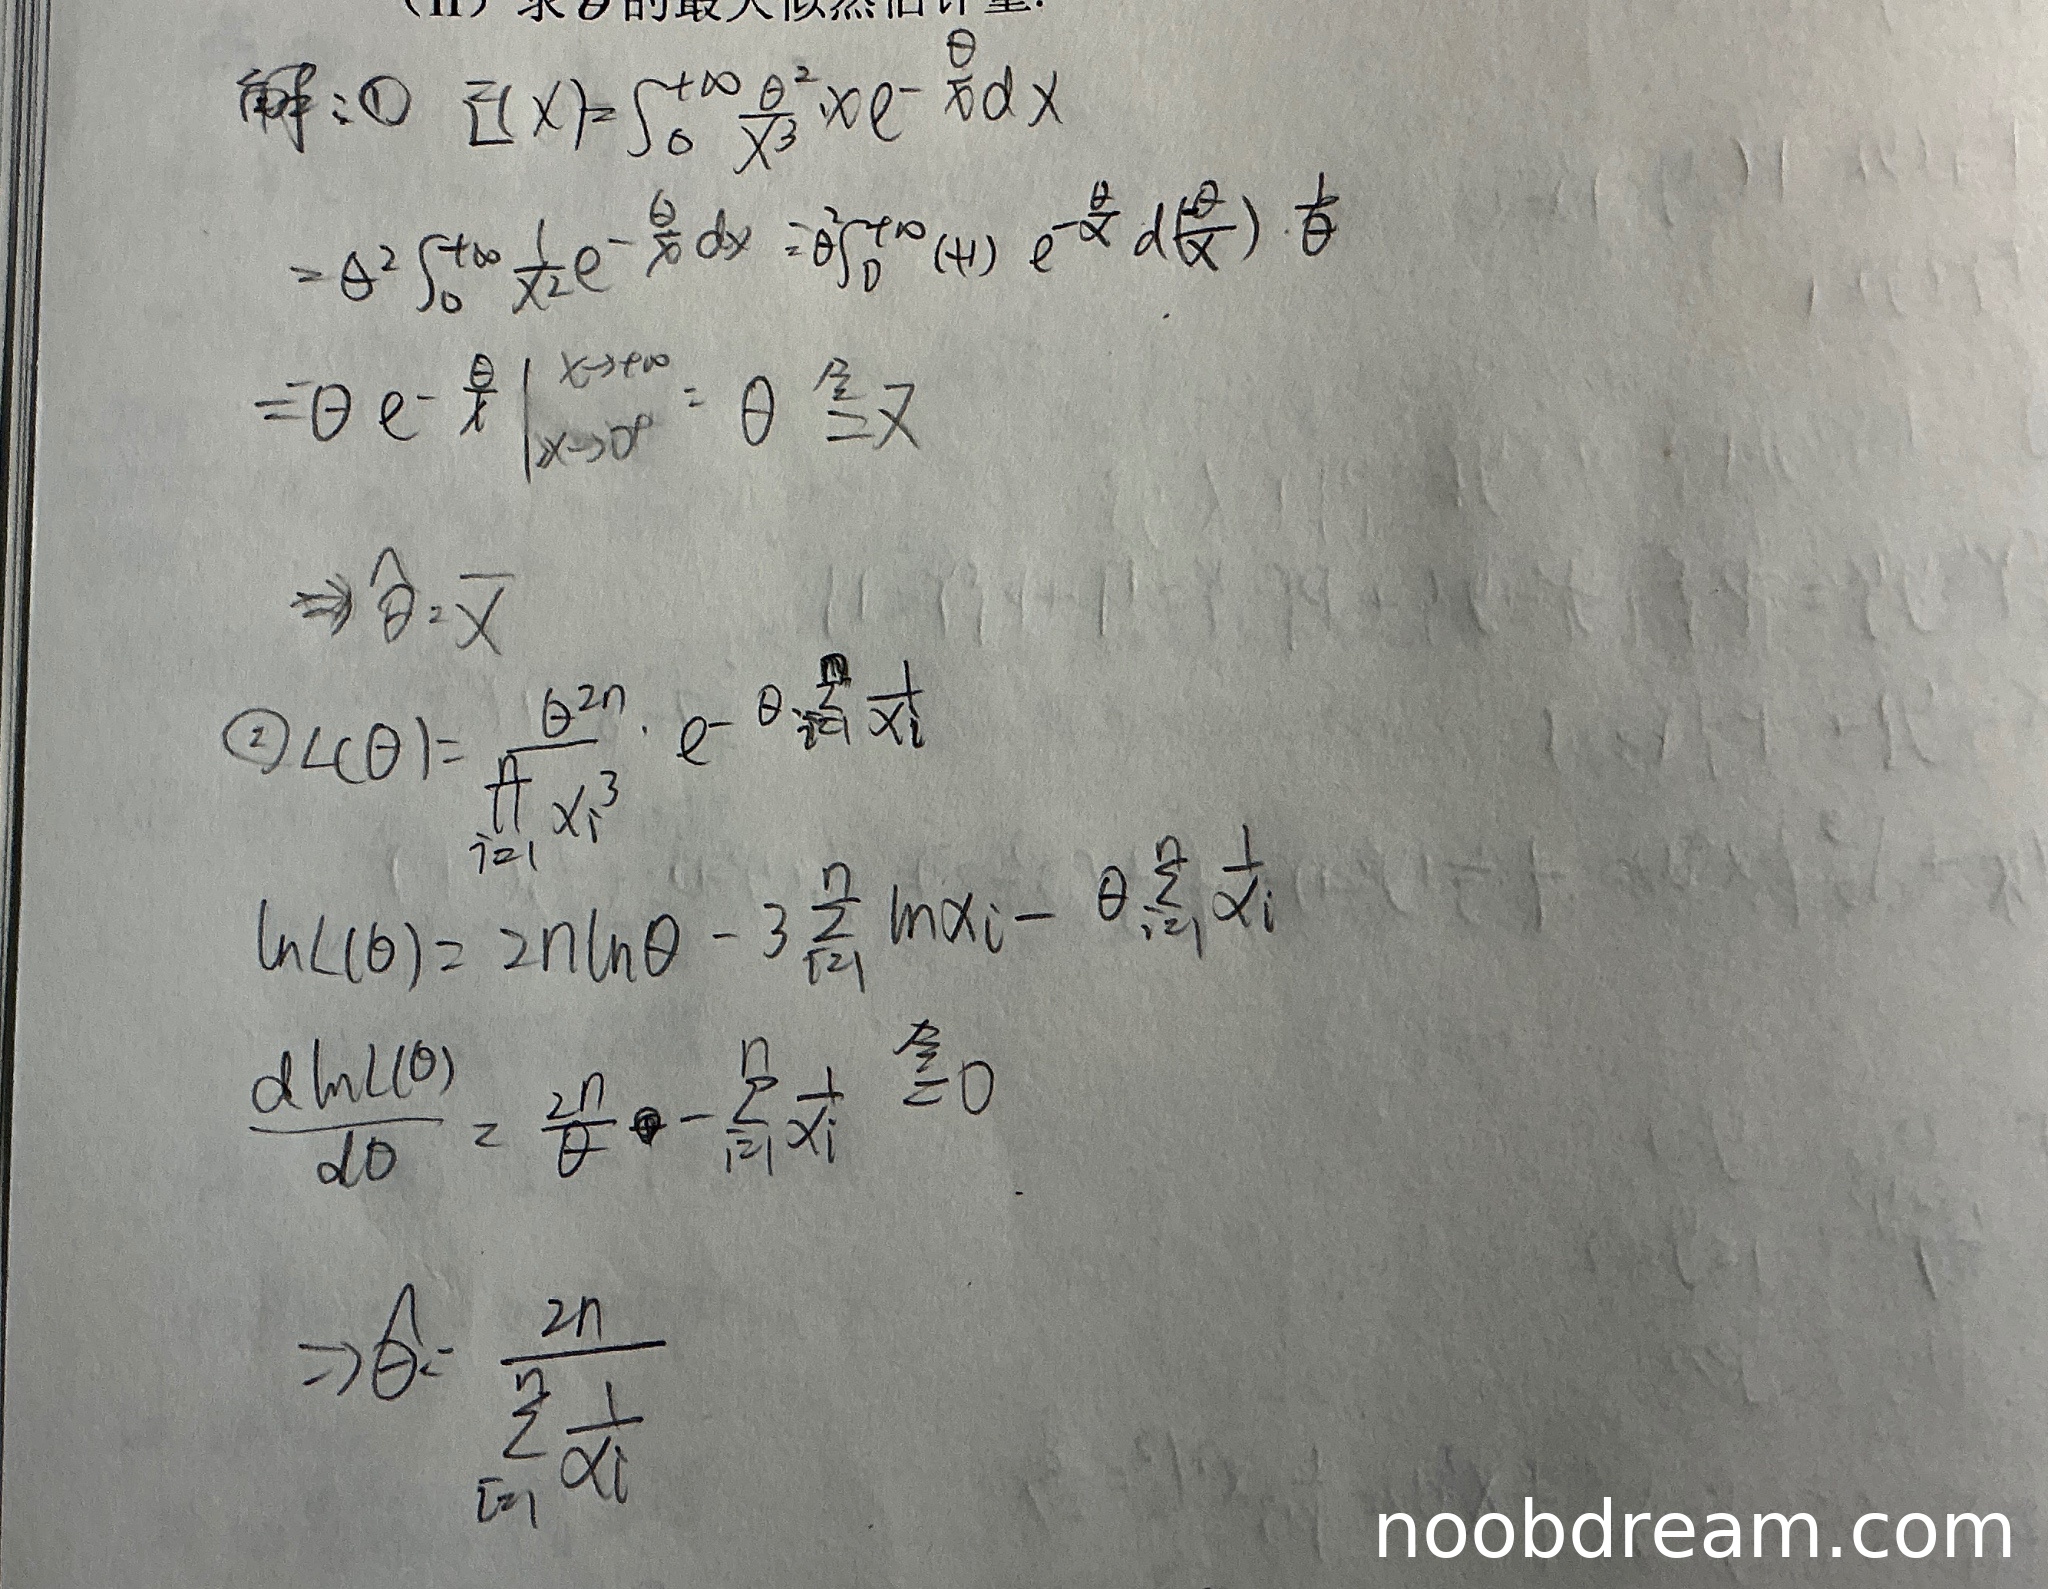 (II) 求θ的最大似然估计量.
解:① E(X)=∫₀^{+∞} θ²/x³ ·x e^{-θ/x} dx
=θ² ∫₀^{+∞} 1/x² e^{-θ/x} dx = θ² ∫₀^{+∞} (+1) e^{-θ/x} d(-θ/x) · 1/θ
= θ e^{-θ/x} |_{x→0⁺}^{x→+∞} = θ 令= X̄
⇒ θ̂ = X̄
② L(θ)= θ^{2n} / ∏_{i=1}^{n} xᵢ³ · e^{-θ ∑_{i=1}^{n} 1/xᵢ}
lnL(θ)= 2nlnθ - 3∑_{i=1}^{n} lnxᵢ - θ∑_{i=1}^{n} 1/xᵢ
dlnL(θ)/dθ = 2n/θ - ∑_{i=1}^{n} 1/xᵢ 令= 0
⇒ θ̂ = 2n / ∑_{i=1}^{n} 1/xᵢ
noobdream.com